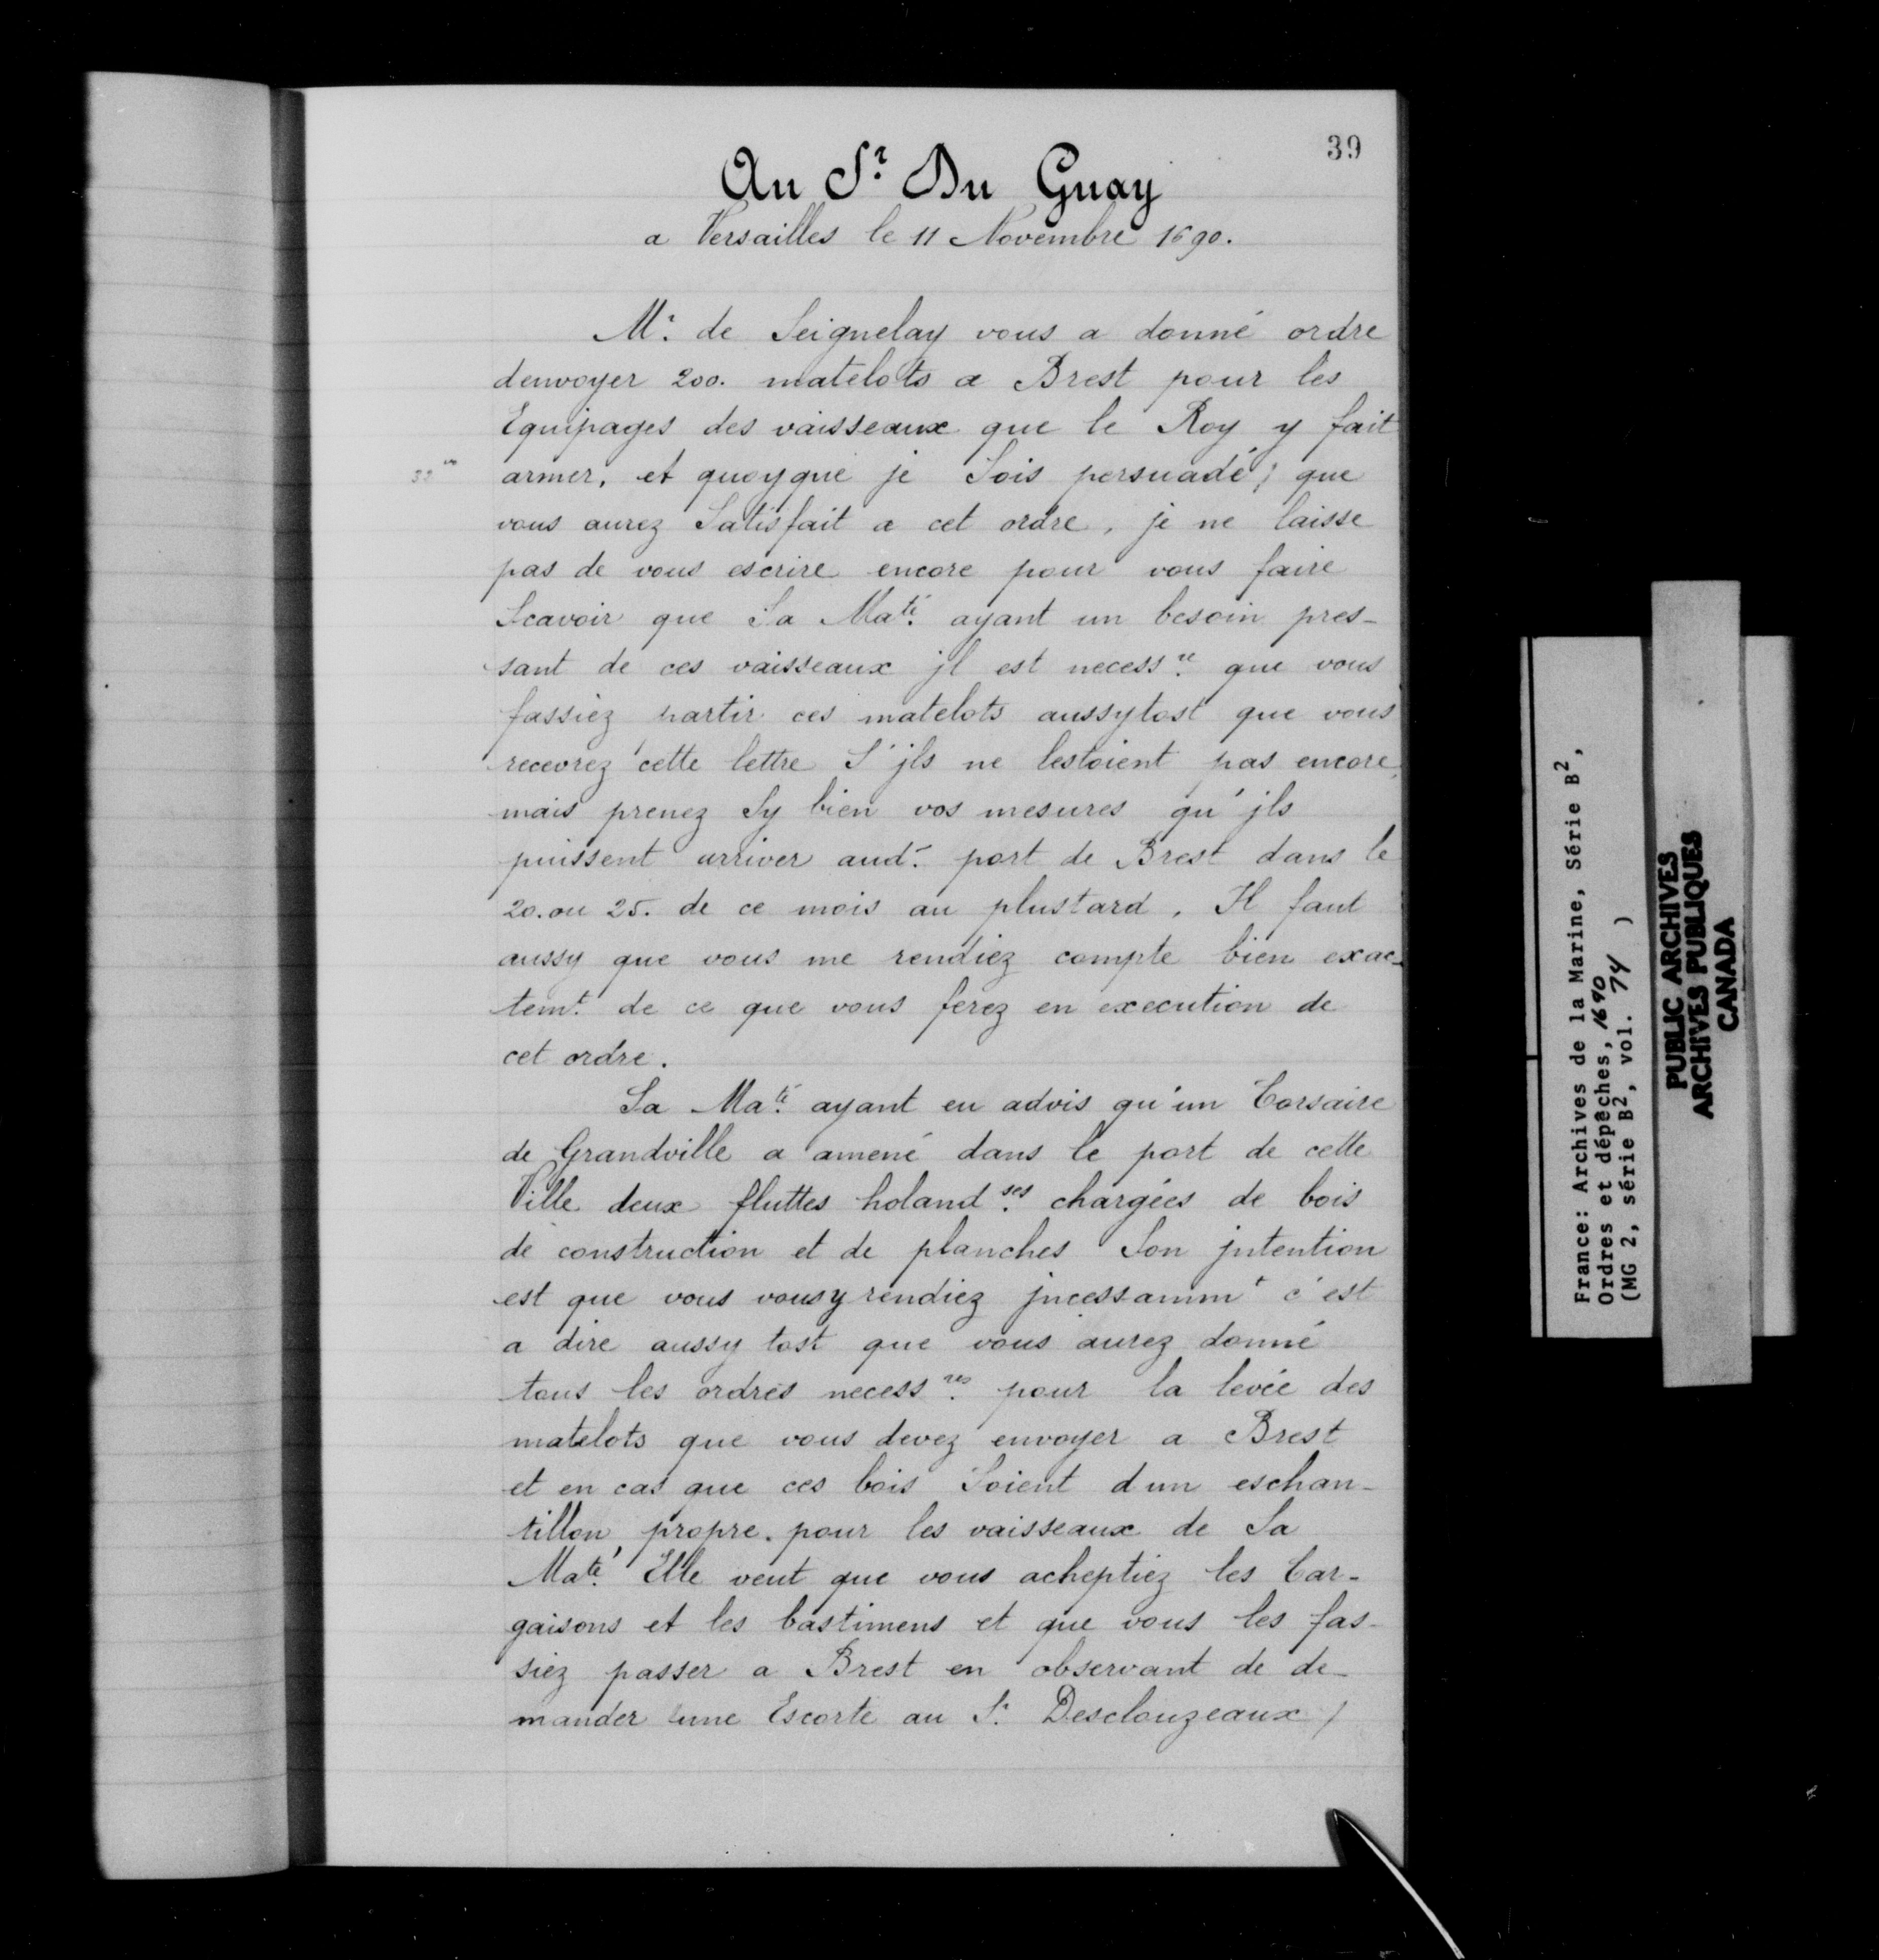 39
Au Sr. Du Guay
a Versailles le 11 Novembre 1690.
Mr. de Seignelay vous a donné ordre
denvoyer 200. matelots a Brest pour les
Equipages des vaisseaux que le Roy y fait
armer, et quoyque je Sois persuadé, que
vous aurez Satisfait a cet ordre, je ne laisse
pas de vous escrire encore pour vous faire
Scavoir que Sa Maté. ayant un besoin pres-
sant de ces vaisseaux jl est necessre. que vous
fassiez partir ces matelots aussytost que vous
recevrez cette lettre S'jls ne lestoient pas encore,
mais prenez Sy bien vos mesures qu'jls
puissent arriver aud. port de Brest dans le
20. ou 25. de ce mois au plustard. Il faut
aussy que vous me rendiez compte bien exac-
temt. de ce que vous ferez en execution de
cet ordre.
Sa Maté. ayant eu advis qu'un Corsaire
de Grandville a amené dans le port de cette
Ville deux fluttes holandses. chargées de bois
de construction et de planches Son jntention
est que vous vous y rendiez jncessammt c'est
a dire aussy tost que vous aurez donné
tous les ordres necessres. pour la levée des
matelots que vous devez envoyer a Brest
et en cas que ces bois Soient dun eschan-
tillon propre pour les vaisseaux de Sa
Maté. Elle veut que vous acheptiez les Car-
gaisons et les bastimens et que vous les fas-
siez passer a Brest en observant de de-
mander une Escorte au Sr. Desclouzeaux,
France: Archives de la Marine, Série B2,
Ordres et dépêches, 1690
(MG 2, série B2, vol. 74 )
PUBLIC ARCHIVES
ARCHIVES PUBLIQUES
CANADA